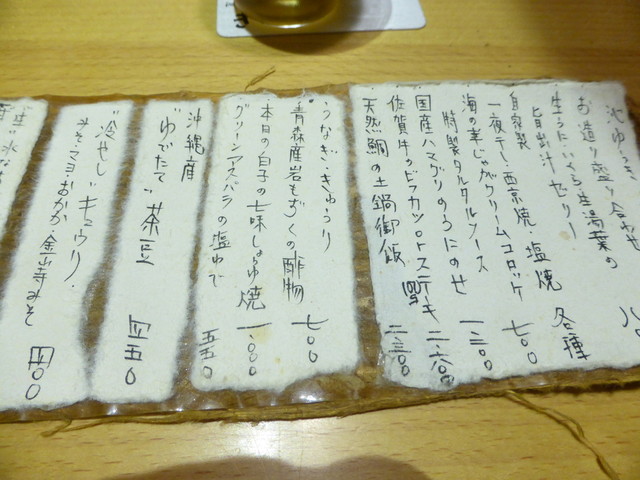 お造り盛り合わせ
生うに・いくら・生湯葉の
旨出汁ゼリー
一夜干し・西京焼・塩焼 各種
自家製
海の幸じゃがクリームコロッケ 七〇〇
特製タルタルソース
国産ハマグリのうにのせ 一、三〇〇
佐賀牛のビフカツorステーキ 100g 二、六〇〇
天然鯛の土鍋御飯 二、三〇〇
うなぎ・きゅうり
青森産岩もずくの酢物 七〇〇
本日の白子の七味しょうゆ焼 一、〇〇〇
グリーンアスパラの塩ゆで 五五〇
沖縄産
"ゆでたて"茶豆 四五〇
"冷やし"キュウリ
みそマヨ・おかか・金山寺みそ 四〇〇